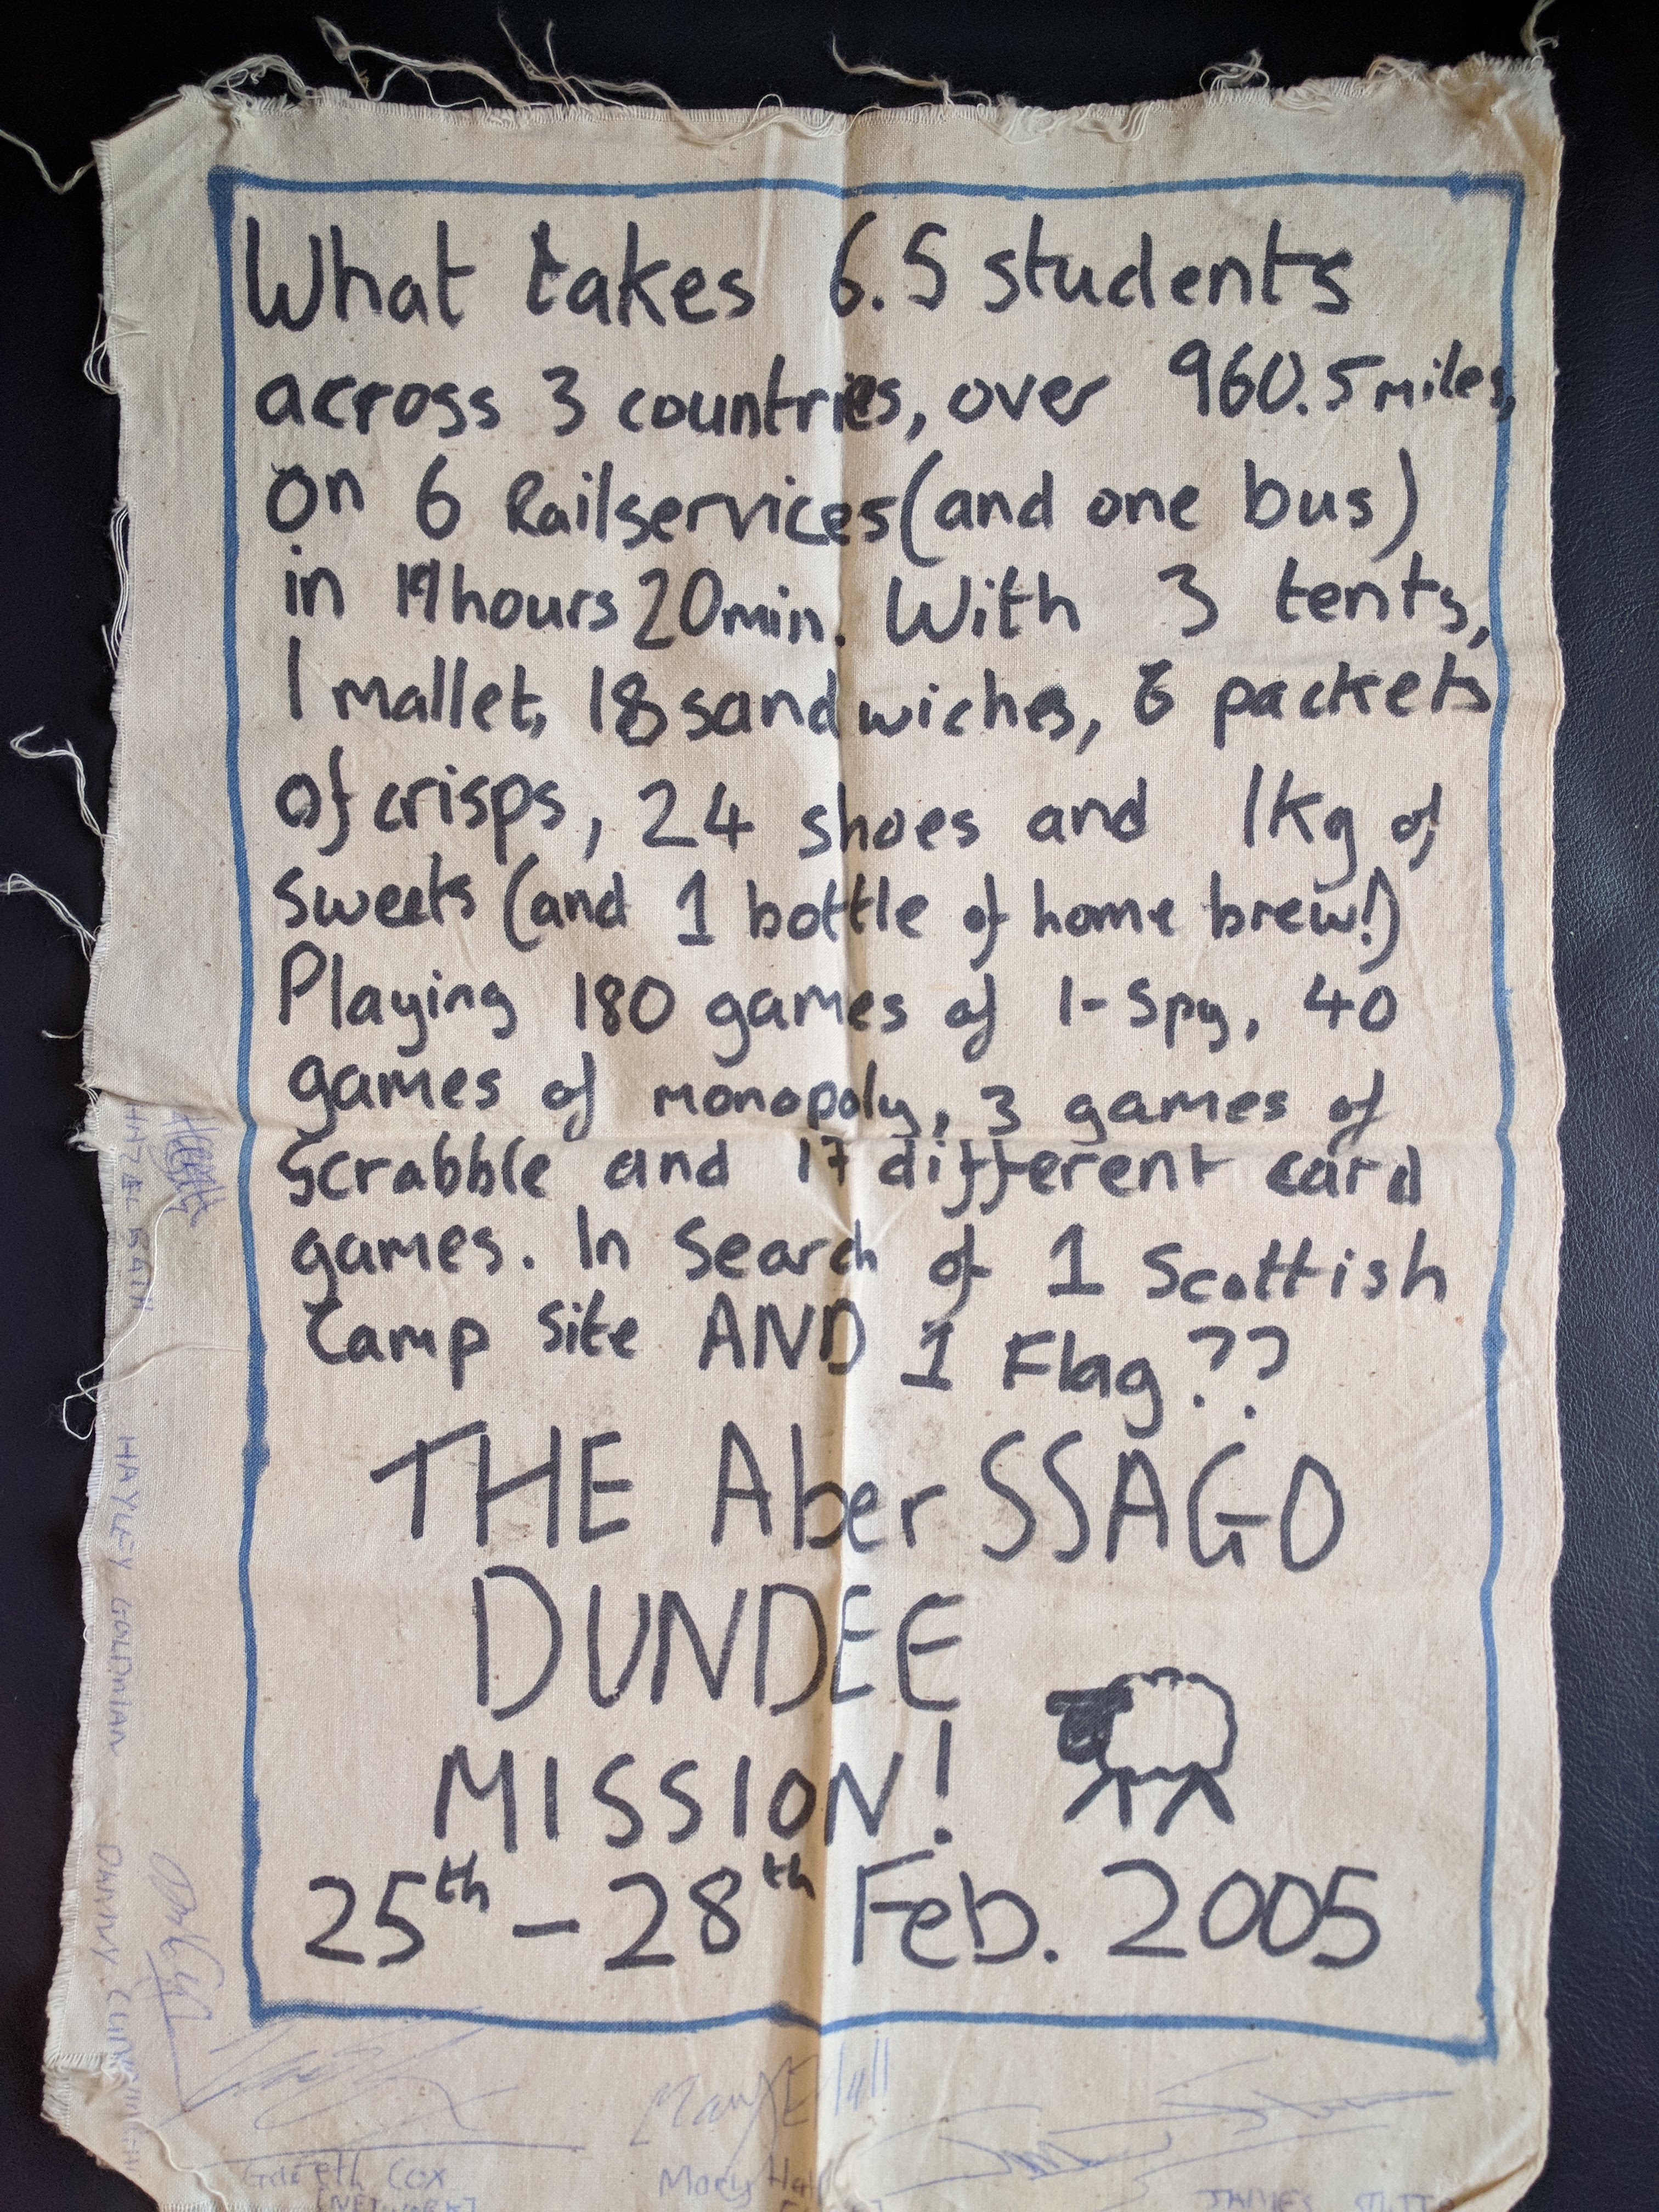 What takes 6.5 students
across 3 countries, over 960.5 miles,
on 6 Railservices (and one bus)
in hours 20min. With 3 tents,
1 mallet, 18 sandwiches, 6 packets
of crisps, 24 shoes and 1kg of
sweets (and 1 bottle of home brew!)
Playing 180 games of I-Spy, 40
games of monopoly, 3 games of
Scrabble and 17 different card
games. In Search of 1 Scottish
Camp Site AND 1 Flag??
THE Aber SSAGO
DUNDEE
MISSION!
25th - 28th Feb. 2005
HAZEL
HAYLEY GOLDMAN
DANNY
Gareth Cox
[NETWORK]
Mary Hall
JAMES